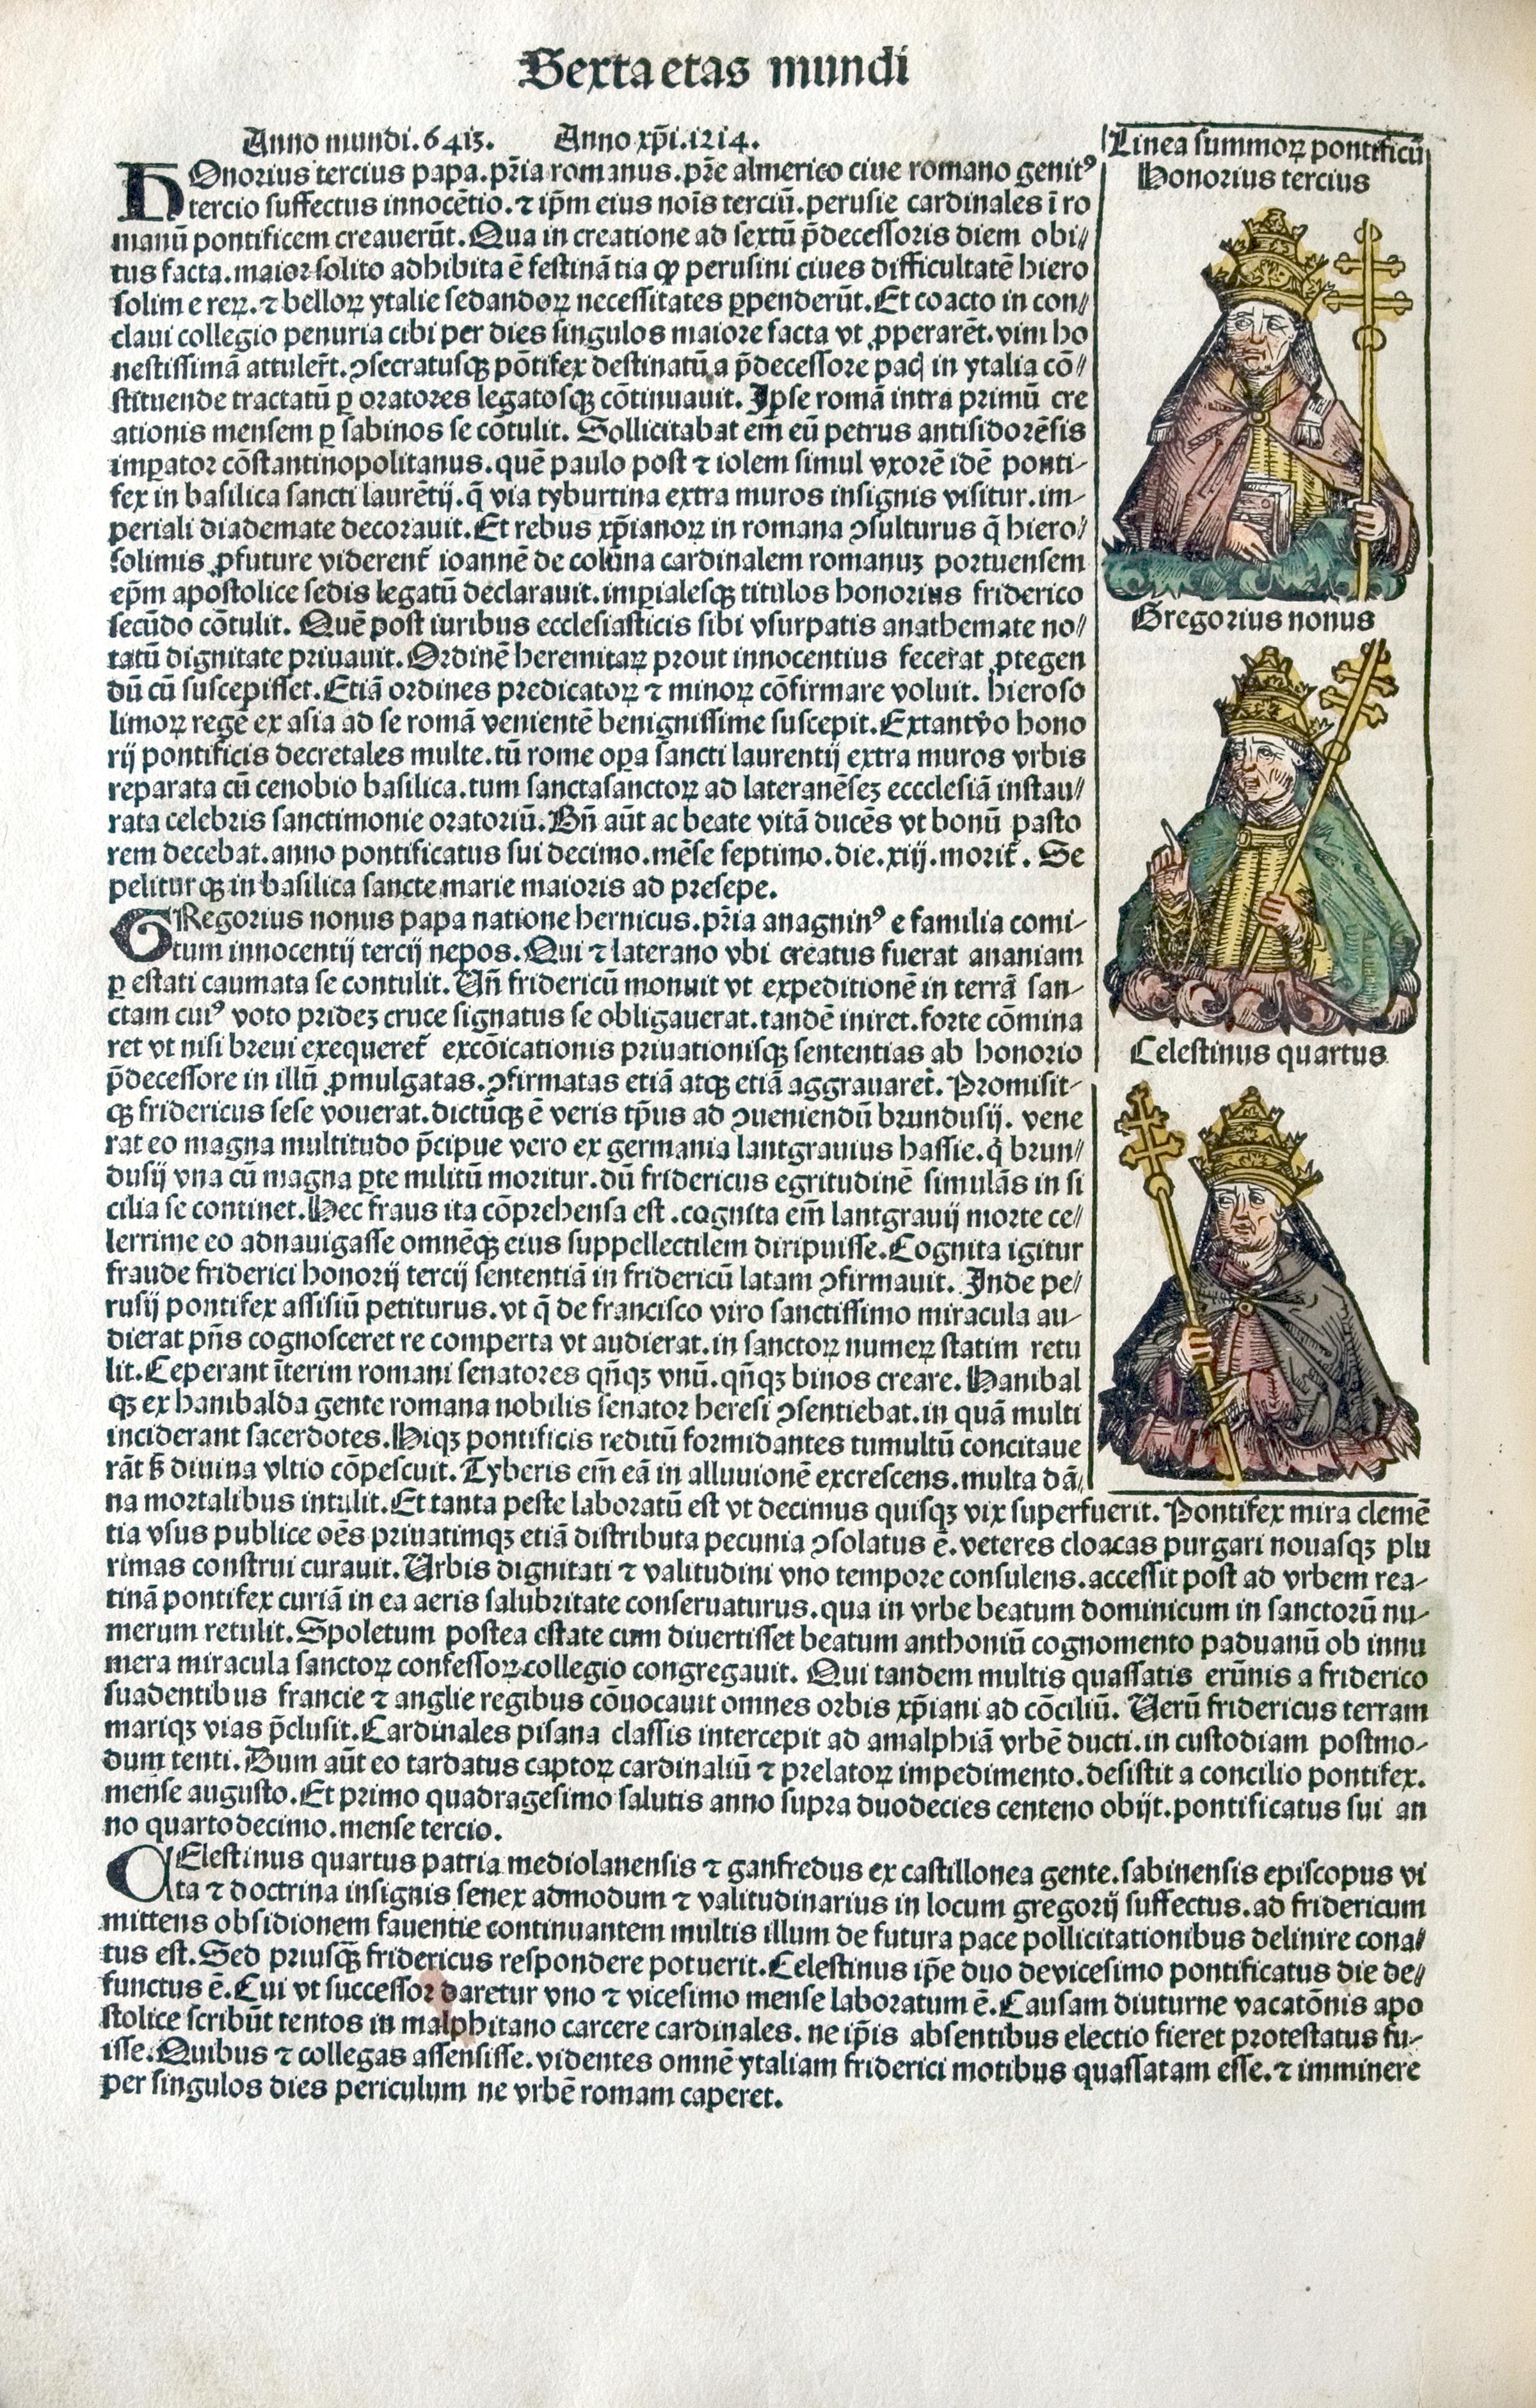 Sexta etas mundi
Anno mundi.6413. Anno xp̄i.1214.
HOnorius tercius papa.pr̄ia romanus.pr̄e almerico ciue romano genitꝰ
tercio suffectus innocētio.⁊ ip̄m eius nois̄ terciū.perusie cardinales ī ro
manū pontificem creauerūt.Qua in creatione ad sextū p̄decessoris diem obi/
tus facta.maior solito adhibita ē festinātia ꝙ perusini ciues difficultatē hiero
solim e reꝝ.⁊ belloꝝ ytalie sedandoꝝ necessitates ꝑpenderūt.Et coacto in con/
claui collegio penuria cibi per dies singulos maiore facta vt ꝓperarēt.vim ho
nestissimā attulerūt.ꝯsecratusqꝫ pōtifex destinatū a p̄decessore pacꝭ in ytalia cō/
stituende tractatū ꝑ oratores legatosqꝫ cōtinuauit. Ipse romā intra primū cre
ationis mensem ꝑ sabinos se cōtulit. Sollicitabat em̄ eū petrus antisidorēsis
imꝑator cōstantinopolitanus.quē paulo post ⁊ iolem simul vxorē idē ponti-
fex in basilica sancti laurētij.q̄ via tyburtina extra muros insignis visitur.im-
periali diademate decorauit.Et rebus xp̄ianoꝝ in romana ꝯsulturus q̄ hiero/
solimis ꝓfuture viderent̄ ioannē de colūna cardinalem romanuꝫ portuensem
ep̄m apostolice sedis legatū declarauit.imꝑialesqꝫ titulos honorius friderico
secūdo cōtulit. Quē post iuribus ecclesiasticis sibi vsurpatis anathemate no/
tatū dignitate priuauit.Ordinē heremitaꝝ prout innocentius fecerat ꝓtegen
dū cū suscepisset.Etiā ordines predicatoꝝ ⁊ minoꝝ cōfirmare voluit. hieroso
limoꝝ regē ex asia ad se romā venientē benignissime suscepit.Extant v̄o hono
rij pontificis decretales multe.tū rome oꝑa sancti laurentij extra muros vrbis
reparata cū cenobio basilica.tum sanctasanctoꝝ ad lateranēseꝫ eccclesiā instau/
rata celebris sanctimonie oratoriū.Bn̄ aūt ac beate vitā ducēs vt bonū pasto
rem decebat.anno pontificatus sui decimo.mēse septimo.die.xiij.morit̄. Se
peliturqꝫ in basilica sancte marie maioris ad presepe.
GRegorius nonus papa natione hernicus.pr̄ia anagninꝰ e familia comi-
tum innocentij tercij nepos.Qui ⁊ laterano vbi creatus fuerat ananiam
ꝑ estati caumata se contulit.Un̄ fridericū monuit vt expeditionē in terrā san-
ctam cuiꝰ voto prideꝫ cruce signatus se obligauerat.tandē iniret.forte cōmina
ret vt nisi breui exequeret̄ excōicationis priuationisqꝫ sententias ab honorio
p̄decessore in illū ꝓmulgatas.ꝯfirmatas etiā atqꝫ etiā aggrauaret̄.Promisit-
qꝫ fridericus sese vouerat.dictūqꝫ ē veris tp̄us ad ꝯueniendū brundusij. vene
rat eo magna multitudo p̄cipue vero ex germania lantgrauius hassie.q̇ brun/
dusij vna cū magna ꝑte militū moritur.dū fridericus egritudinē simulās in si
cilia se continet.Hec fraus ita cōprehensa est.cognita em̄ lantgrauij morte ce/
lerrime eo adnauigasse omnēqꝫ eius suppellectilem diripuisse.Cognita igitur
fraude friderici honorij tercij sententiā in fridericū latam ꝯfirmauit. Inde pe/
rusij pontifex assisiū petiturus.vt q̄ de francisco viro sanctissimo miracula au-
dierat pn̄s cognosceret re comperta vt audierat.in sanctoꝝ numeꝝ statim retu
lit.Ceperant īterim romani senatores qn̄qꝫ vnū.qn̄qꝫ binos creare.Hanibal
qꝫ ex hanibalda gente romana nobilis senator heresi ꝯsentiebat.in quā multi
inciderant sacerdotes.Hiqꝫ pontificis reditū formidantes tumultū concitaue
rāt sꝫ diuina vltio cōpescuit.Tyberis em̄ eā in alluuionē excrescens.multa dā/
na mortalibus intulit.Et tanta peste laboratū est vt decimus quisqꝫ vix superfuerit.Pontifex mira clemē
tia vsus publice oēs priuatimqꝫ etiā distributa pecunia ꝯsolatus ē.veteres cloacas purgari nouasqꝫ plu
rimas construi curauit.Urbis dignitati ⁊ valitudini vno tempore consulens.accessit post ad vrbem rea-
tinā pontifex curiā in ea aeris salubritate conseruaturus.qua in vrbe beatum dominicum in sanctorū nu-
merum retulit.Spoletum postea estate cum diuertisset beatum anthoniū cognomento paduanū ob innu
mera miracula sanctoꝝ confessoꝝ collegio congregauit. Qui tandem multis quassatis erūnis a friderico
suadentibus francie ⁊ anglie regibus cōuocauit omnes orbis xp̄iani ad cōciliū. Uerū fridericus terram
mariqꝫ vias p̄clusit.Cardinales pisana classis intercepit ad amalphiā vrbē ducti.in custodiam postmo-
dum tenti.Dum aūt eo tardatus captoꝝ cardinaliū ⁊ prelatoꝝ impedimento.desistit a concilio pontifex.
mense augusto.Et primo quadragesimo salutis anno supra duodecies centeno obijt.pontificatus sui an
no quartodecimo.mense tercio.
CElestinus quartus patria mediolanensis ⁊ ganfredus ex castillonea gente.sabinensis episcopus vi
ta ⁊ doctrina insignis senex admodum ⁊ valitudinarius in locum gregorij suffectus.ad fridericum
mittens obsidionem fauentie continuantem multis illum de futura pace pollicitationibus delinire cona/
tus est.Sed priusqꝫ̄ fridericus respondere potuerit.Celestinus ip̄e duo devicesimo pontificatus die de/
functus ē.Cui vt successor daretur vno ⁊ vicesimo mense laboratum ē.Causam diuturne vacatōnis apo
stolice scribūt tentos in malphitano carcere cardinales. ne ip̄is absentibus electio fieret protestatus fu-
isse.Quibus ⁊ collegas assensisse.videntes omnē ytaliam friderici motibus quassatam esse.⁊ imminere
per singulos dies periculum ne vrbē romam caperet.
Linea summoꝝ pontificū
Honorius tercius
Gregorius nonus
Celestinus quartus